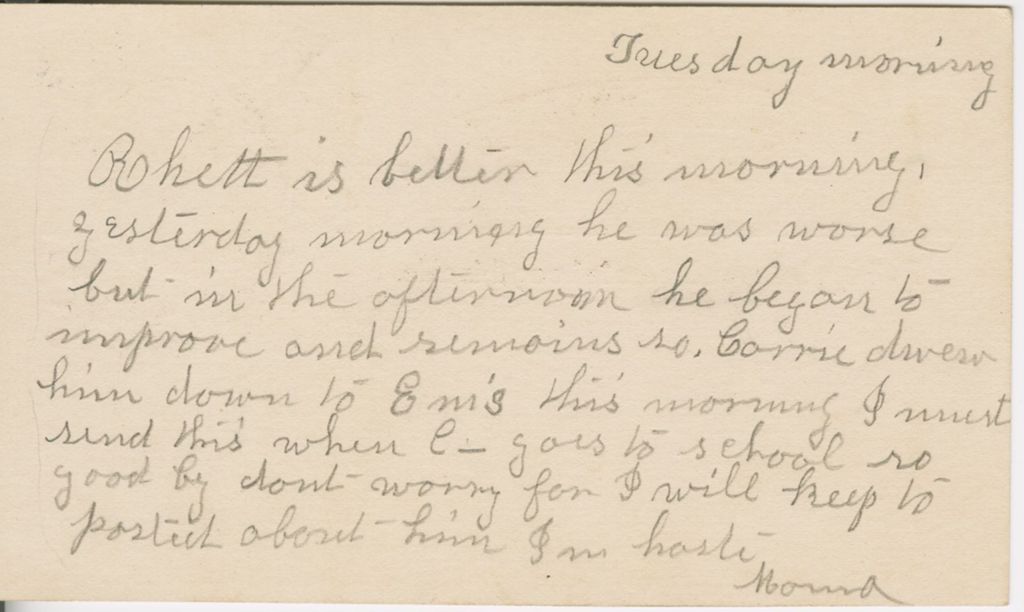 Tuesday morning
Rhett is better this morning,
yesterday morning he was worse
but in the afternoon he began to
improve and remains so. Carrie drew
him down to Em's this morning I must
send this when C— goes to school so
good by dont worry for I will keep to
posted about him In haste
Mama